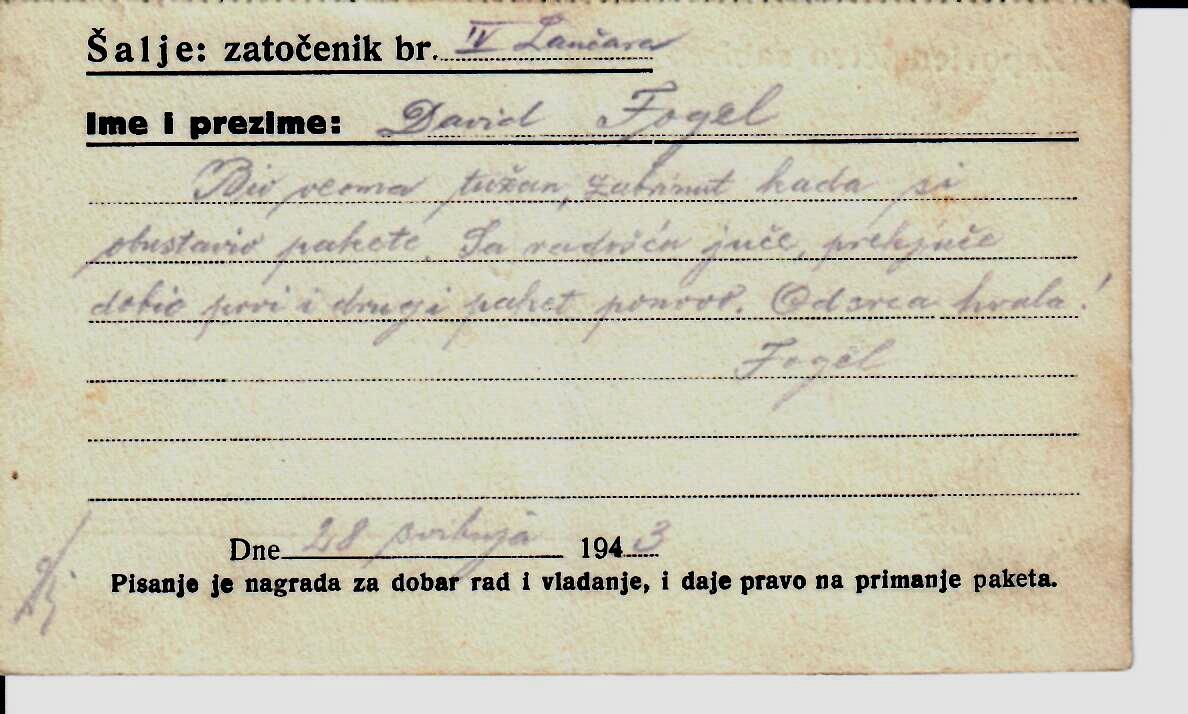 Šalje: zatočenik br. IV Lančara
Ime i prezime: David Fogel
Bio veoma tužan, zabrinut kada si
obustavio pakete. Sa radošću juče, prekjuče
dobio prvi i drugi paket ponovo. Od srca hvala!
Fogel
Dne 28 svibnja 1943
Pisanje je nagrada za dobar rad i vladanje, i daje pravo na primanje paketa.